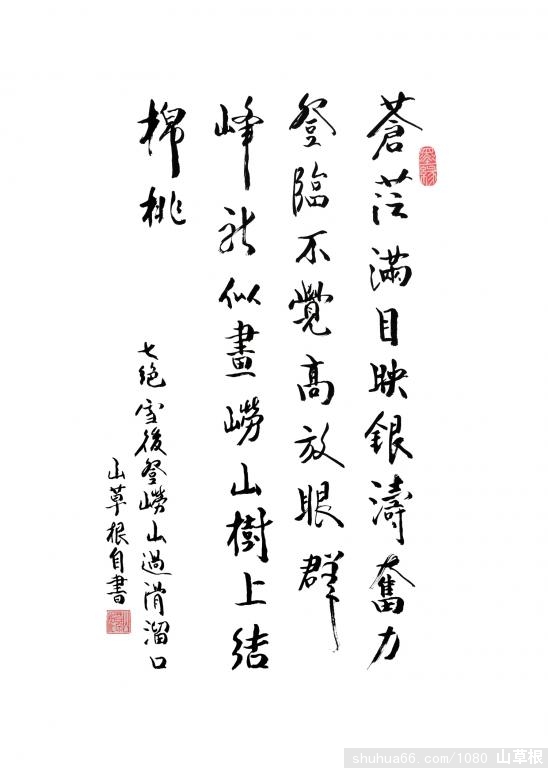 蒼茫滿目映銀濤奮力
登臨不覺高放眼群
峰新似畫嶗山樹上結
棉桃
七絕雪後登嶗山過滑溜口
山草根自書
shuhua66 .com/1080 山草根